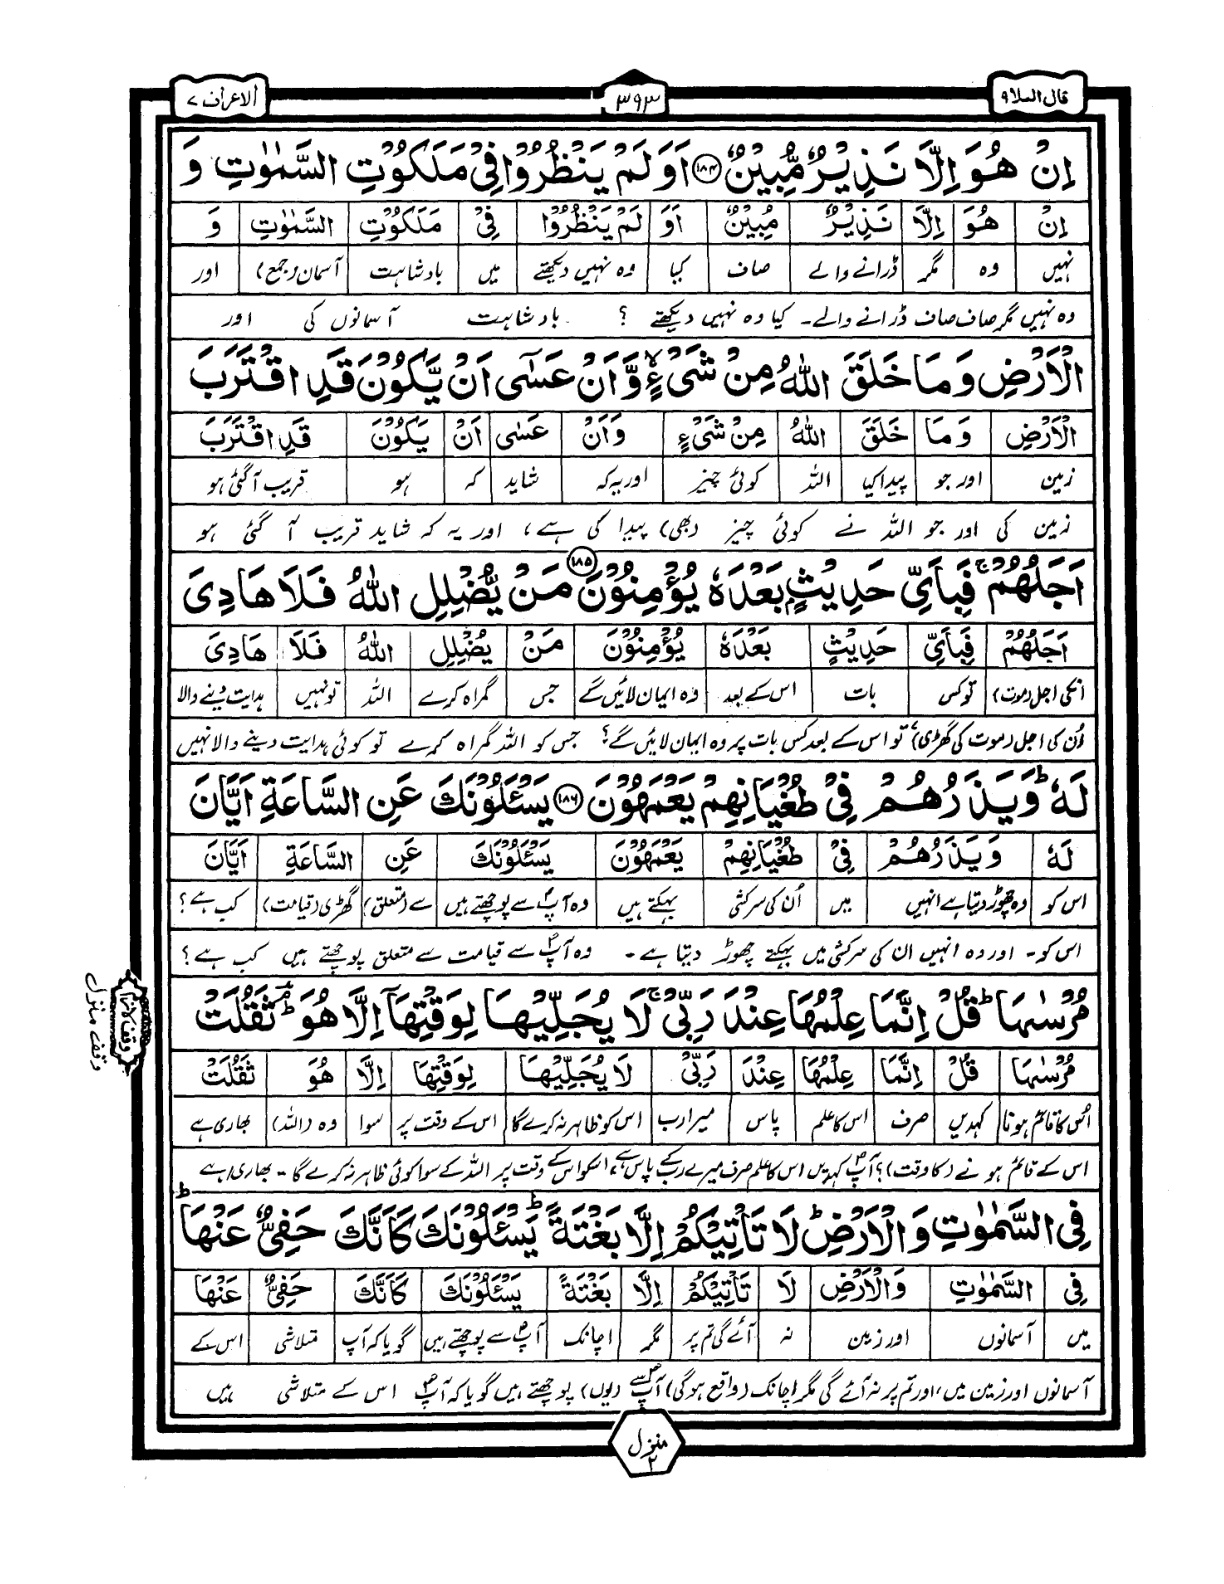 قال الملا ۹
۳۹۳
الاعراف ۷
اِنْ هُوَ اِلَّا نَذِيْرٌ مُّبِيْنٌ ۱۸۴ اَوَلَمْ يَنْظُرُوْا فِيْ مَلَكُوْتِ السَّمٰوٰتِ وَ
اِنْ هُوَ اِلَّا نَذِيْرٌ مُبِيْنٌ اَوَ لَمْ يَنْظُرُوْا فِيْ مَلَكُوْتِ السَّمٰوٰتِ وَ
نہیں وہ مگر ڈرانے والے صاف کیا وہ نہیں دیکھتے میں بادشاہت آسمان (جمع) اور
وہ نہیں مگر صاف صاف ڈرانے والے۔ کیا وہ نہیں دیکھتے ؟ بادشاہت آسمانوں کی اور
الْاَرْضِ وَمَا خَلَقَ اللّٰهُ مِنْ شَيْءٍ ۙ وَّاَنْ عَسٰٓى اَنْ يَّكُوْنَ قَدِ اقْتَرَبَ
الْاَرْضِ وَمَا خَلَقَ اللّٰهُ مِنْ شَيْءٍ وَاَنْ عَسٰى اَنْ يَكُوْنَ قَدِ اقْتَرَبَ
زمین اور جو پیدا کیا اللہ کوئی چیز اور یہ کہ شاید کہ ہو قریب آگئی ہو
زمین کی اور جو اللہ نے کوئی چیز (بھی) پیدا کی ہے، اور یہ کہ شاید قریب آ گئی ہو
اَجَلُهُمْ ۚ فَبِاَيِّ حَدِيْثٍۭ بَعْدَهٗ يُؤْمِنُوْنَ ۱۸۵ مَنْ يُّضْلِلِ اللّٰهُ فَلَا هَادِيَ
اَجَلُهُمْ فَبِاَيِّ حَدِيْثٍ بَعْدَهٗ يُؤْمِنُوْنَ مَنْ يُضْلِلِ اللّٰهُ فَلَا هَادِيَ
انکی اجل (موت) تو کس بات اس کے بعد وہ ایمان لائیں گے جس گمراہ کرے اللہ تو نہیں ہدایت دینے والا
اُن کی اجل (موت کی گھڑی) تو اس کے بعد کس بات پر وہ ایمان لائیں گے؟ جس کو اللہ گمراہ کرے تو کوئی ہدایت دینے والا نہیں
لَهٗ ۭ وَيَذَرُهُمْ فِيْ طُغْيَانِهِمْ يَعْمَهُوْنَ ۱۸۶ يَسْـَٔلُوْنَكَ عَنِ السَّاعَةِ اَيَّانَ
لَهٗ وَيَذَرُهُمْ فِيْ طُغْيَانِهِمْ يَعْمَهُوْنَ يَسْـَٔلُوْنَكَ عَنِ السَّاعَةِ اَيَّانَ
اس کو وہ چھوڑ دیتا ہے انہیں میں اُن کی سرکشی بہکتے ہیں وہ آپؐ سے پوچھتے ہیں سے (متعلق) گھڑی (قیامت) کب ہے؟
اس کو۔ اور وہ انہیں ان کی سرکشی میں بہکتے چھوڑ دیتا ہے۔ وہ آپؐ سے قیامت سے متعلق پوچھتے ہیں کب ہے؟
مُرْسٰىهَا ۭ قُلْ اِنَّمَا عِلْمُهَا عِنْدَ رَبِّيْ ۚ لَا يُجَلِّيْهَا لِوَقْتِهَآ اِلَّا هُوَ ۘ ثَقُلَتْ
مُرْسٰىهَا قُلْ اِنَّمَا عِلْمُهَا عِنْدَ رَبِّيْ لَا يُجَلِّيْهَا لِوَقْتِهَا اِلَّا هُوَ ثَقُلَتْ
اُس کا قائم ہونا کہدیں صرف اس کا علم پاس میرا رب اس کو ظاہر نہ کرے گا اس کے وقت پر سوا وہ (اللہ) بھاری ہے
اس کے قائم ہونے (کا وقت)؟ آپؐ کہدیں اس کا علم صرف میرے رب کے پاس ہے، اسکو اس کے وقت پر اللہ کے سوا کوئی ظاہر نہ کرے گا۔ بھاری ہے
فِي السَّمٰوٰتِ وَالْاَرْضِ ۭ لَا تَاْتِيْكُمْ اِلَّا بَغْتَةً ۭ يَسْـَٔلُوْنَكَ كَاَنَّكَ حَفِيٌّ عَنْهَا ۭ
فِي السَّمٰوٰتِ وَالْاَرْضِ لَا تَاْتِيْكُمْ اِلَّا بَغْتَةً يَسْـَٔلُوْنَكَ كَاَنَّكَ حَفِيٌّ عَنْهَا
میں آسمانوں اور زمین نہ آئے گی تم پر مگر اچانک آپؐ سے پوچھتے ہیں گویا کہ آپ متلاشی اس کے
آسمانوں اور زمین میں، اور تم پر نہ آئے گی مگر اچانک (واقع ہوگی) آپؐ سے (یوں) پوچھتے ہیں گویا کہ آپؐ اس کے متلاشی ہیں
وقف منزل
منزل ۲